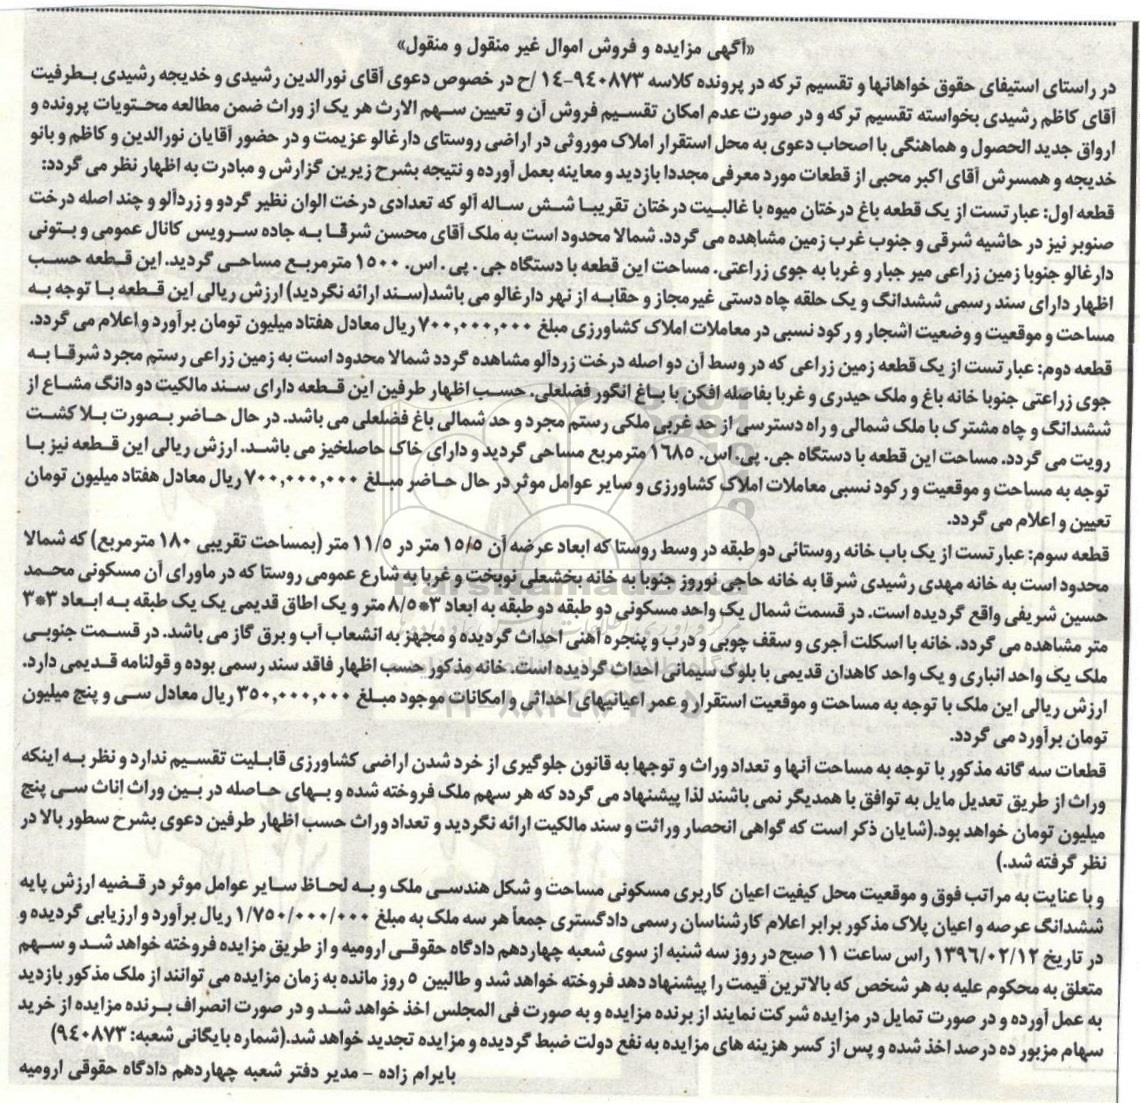 «آگهی مزایده و فروش اموال غیر منقول و منقول»
در راستای استیفای حقوق خواهانها و تقسیم ترکه در پرونده کلاسه ۹۴۰۸۷۳-۱۴ /ح در خصوص دعوی آقای نورالدین رشیدی و خدیجه رشیدی بطرفیت
آقای کاظم رشیدی بخواسته تقسیم ترکه و در صورت عدم امکان تقسیم فروش آن و تعیین سهم الارث هر یک از وراث ضمن مطالعه محتویات پرونده و
ارواق جدید الحصول و هماهنگی با اصحاب دعوی به محل استقرار املاک موروثی در اراضی روستای دارغالو عزیمت و در حضور آقایان نورالدین و کاظم و بانو
خدیجه و همسرش آقای اکبر محبی از قطعات مورد معرفی مجددا بازدید و معاینه بعمل آورده و نتیجه بشرح زیرین گزارش و مبادرت به اظهار نظر می گردد:
قطعه اول: عبارتست از یک قطعه باغ درختان میوه با غالبیت درختان تقریبا شش ساله آلو که تعدادی درخت الوان نظیر گردو و زردآلو و چند اصله درخت
صنوبر نیز در حاشیه شرقی و جنوب غرب زمین مشاهده می گردد. شمالا محدود است به ملک آقای محسن شرقا به جاده سرویس کانال عمومی و بتونی
دارغالو جنوبا زمین زراعی میر جبار و غربا به جوی زراعتی. مساحت این قطعه با دستگاه جی . پی . اس. ۱۵۰۰ مترمربع مساحی گردید. این قطعه حسب
اظهار دارای سند رسمی ششدانگ و یک حلقه چاه دستی غیرمجاز و حقابه از نهر دارغالو می باشد(سند ارائه نگردید) ارزش ریالی این قطعه با توجه به
مساحت و موقعیت و وضعیت اشجار و رکود نسبی در معاملات املاک کشاورزی مبلغ ۷۰۰,۰۰۰,۰۰۰ ریال معادل هفتاد میلیون تومان برآورد و اعلام می گردد.
قطعه دوم: عبارتست از یک قطعه زمین زراعی که در وسط آن دو اصله درخت زردآلو مشاهده گردد شمالا محدود است به زمین زراعی رستم مجرد شرقا به
جوی زراعتی جنوبا خانه باغ و ملک حیدری و غربا بفاصله افکن با باغ انگور فضلعلی. حسب اظهار طرفین این قطعه دارای سند مالکیت دو دانگ مشاع از
ششدانگ و چاه مشترک با ملک شمالی و راه دسترسی از حد غربی ملکی رستم مجرد و حد شمالی باغ فضلعلی می باشد. در حال حاضر بصورت بلا کشت
رویت می گردد. مساحت این قطعه با دستگاه جی. پی. اس. ۱۶۸۵ مترمربع مساحی گردید و دارای خاک حاصلخیز می باشد. ارزش ریالی این قطعه نیز با
توجه به مساحت و موقعیت و رکود نسبی معاملات املاک کشاورزی و سایر عوامل موثر در حال حاضر مبلغ ۷۰۰,۰۰۰,۰۰۰ ریال معادل هفتاد میلیون تومان
تعیین و اعلام می گردد.
قطعه سوم: عبارتست از یک باب خانه روستائی دو طبقه در وسط روستا که ابعاد عرضه آن ۱۵/۵ متر در ۱۱/۵ متر (بمساحت تقریبی ۱۸۰ مترمربع) که شمالا
محدود است به خانه مهدی رشیدی شرقا به خانه حاجی نوروز جنوبا به خانه بخشعلی نوبخت و غربا به شارع عمومی روستا که در ماورای آن مسکونی محمد
حسین شریفی واقع گردیده است. در قسمت شمال یک واحد مسکونی دو طبقه دو طبقه به ابعاد ۳*۸/۵ متر و یک اطاق قدیمی یک یک طبقه به ابعاد ۳*۳
متر مشاهده می گردد. خانه با اسکلت آجری و سقف چوبی و درب و پنجره آهنی احداث گردیده و مجهز به انشعاب آب و برق گاز می باشد. در قسمت جنوبی
ملک یک واحد انباری و یک واحد کاهدان قدیمی با بلوک سیمانی احداث گردیده است. خانه مذکور حسب اظهار فاقد سند رسمی بوده و قولنامه قدیمی دارد.
ارزش ریالی این ملک با توجه به مساحت و موقعیت استقرار و عمر اعیانیهای احداثی و امکانات موجود مبلغ ۳۵۰,۰۰۰,۰۰۰ ریال معادل سی و پنج میلیون
تومان برآورد می گردد.
قطعات سه گانه مذکور با توجه به مساحت آنها و تعداد وراث و توجها به قانون جلوگیری از خرد شدن اراضی کشاورزی قابلیت تقسیم ندارد و نظر به اینکه
وراث از طریق تعدیل مایل به توافق با همدیگر نمی باشند لذا پیشنهاد می گردد که هر سهم ملک فروخته شده و بهای حاصله در بین وراث اناث سی پنج
میلیون تومان خواهد بود.(شایان ذکر است که گواهی انحصار وراثت و سند مالکیت ارائه نگردید و تعداد وراث حسب اظهار طرفین دعوی بشرح سطور بالا در
نظر گرفته شد.)
و با عنایت به مراتب فوق و موقعیت محل کیفیت اعیان کاربری مسکونی مساحت و شکل هندسی ملک و به لحاظ سایر عوامل موثر در قضیه ارزش پایه
ششدانگ عرصه و اعیان پلاک مذکور برابر اعلام کارشناسان رسمی دادگستری جمعاً هر سه ملک به مبلغ ۱/۷۵۰/۰۰۰/۰۰۰ ریال برآورد و ارزیابی گردیده و
در تاریخ ۱۳۹۶/۰۲/۱۲ راس ساعت ۱۱ صبح در روز سه شنبه از سوی شعبه چهاردهم دادگاه حقوقی ارومیه و از طریق مزایده فروخته خواهد شد و سهم
متعلق به محکوم علیه به هر شخص که بالاترین قیمت را پیشنهاد دهد فروخته خواهد شد و طالبین ۵ روز مانده به زمان مزایده می توانند از ملک مذکور بازدید
به عمل آورده و در صورت تمایل در مزایده شرکت نمایند از برنده مزایده و به صورت فی المجلس اخذ خواهد شد و در صورت انصراف برنده مزایده از خرید
سهام مزبور ده درصد اخذ شده و پس از کسر هزینه های مزایده به نفع دولت ضبط گردیده و مزایده تجدید خواهد شد.(شماره بایگانی شعبه: ۹۴۰۸۷۳)
بایرام زاده - مدیر دفتر شعبه چهاردهم دادگاه حقوقی ارومیه